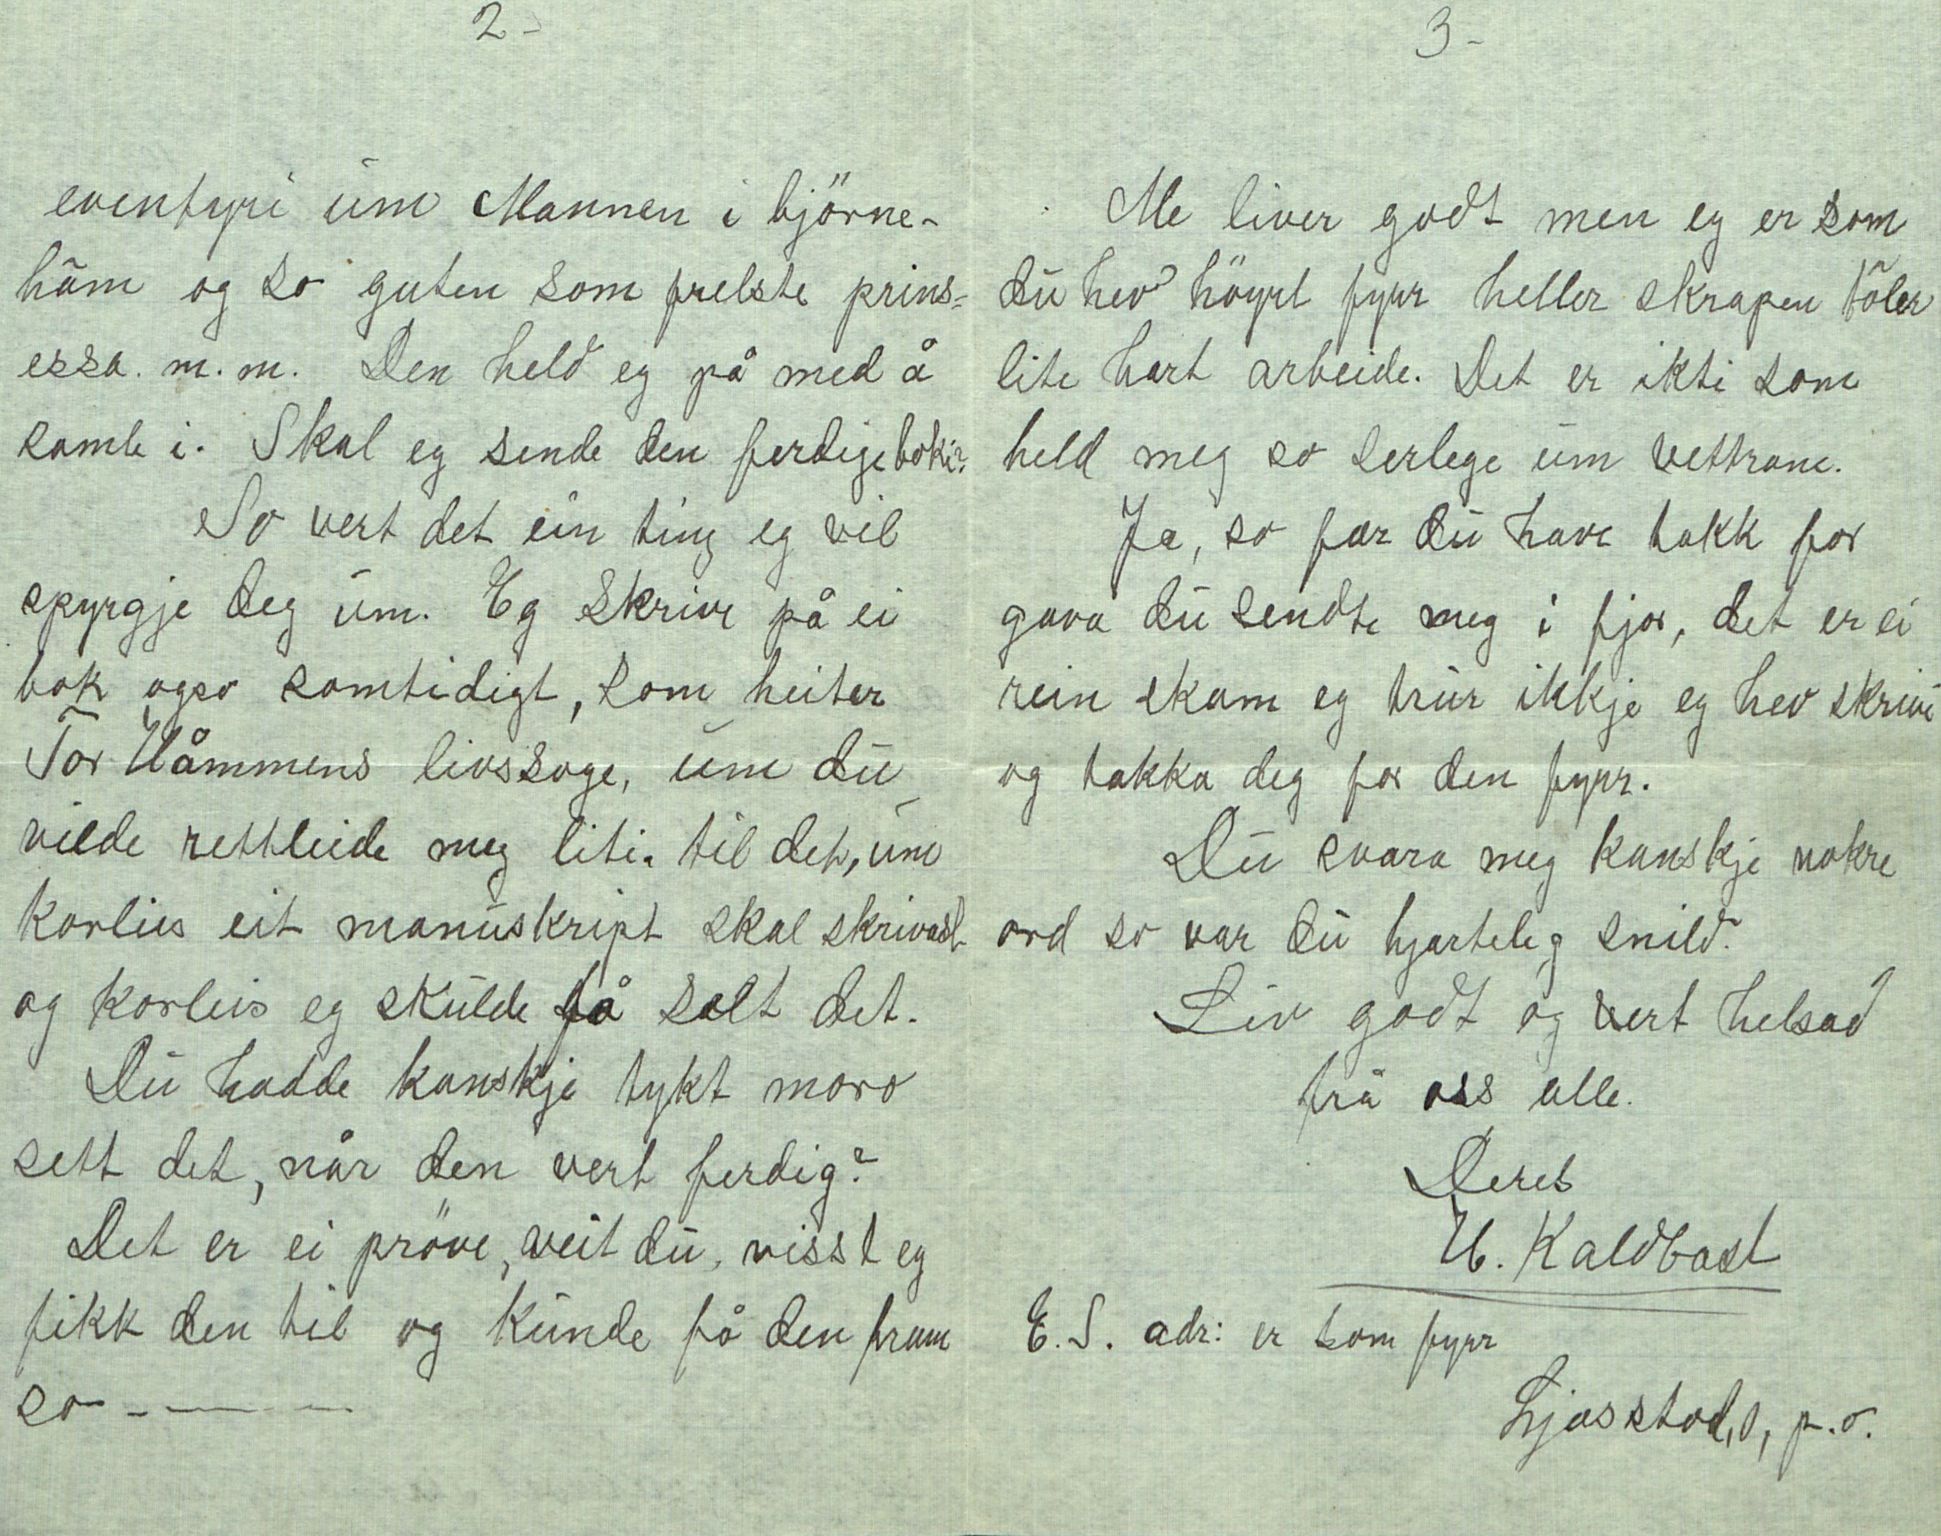 2-
eventyri um Mannen i björne-
ham og so guten som frelste prins-
essa. m.m. Den held eg på med å
samle i. Skal eg sende den ferdige boki?
So vert det ein ting eg vil
spyrgje deg um. Eg skrive på ei
bok ogso samtidigt, som heiter
Tor Uåmmens livssoge, um du
vilde rettleide meg liti. til det, um
korleis eit manuskript skal skrivast
og korleis eg skulde få selt det.
Du hadde kanskje tykt moro
sett det, når den vert ferdig?
Det er ei pröve, veit du, visst eg
fikk den til og kunde få den fram
so - - - -
3-
Me liver godt men eg er som
du hev höyrt fyrr heller skrapen töler
lite hart arbeide. Det er ikti som
held meg so serlege um vettrane.
Ja, so fær du have takk for
gava du sendte meg i fjor, det er ei
rein skam eg trur ikkje eg hev skrive
og takka deg for den fyrr.
Du svara meg kanskje nokre
ord so var du hjarteleg snild.
Liv godt og vert helsad
frå oss alle.
Deres
H. Kaldbast
E. S. adr: er som fyrr